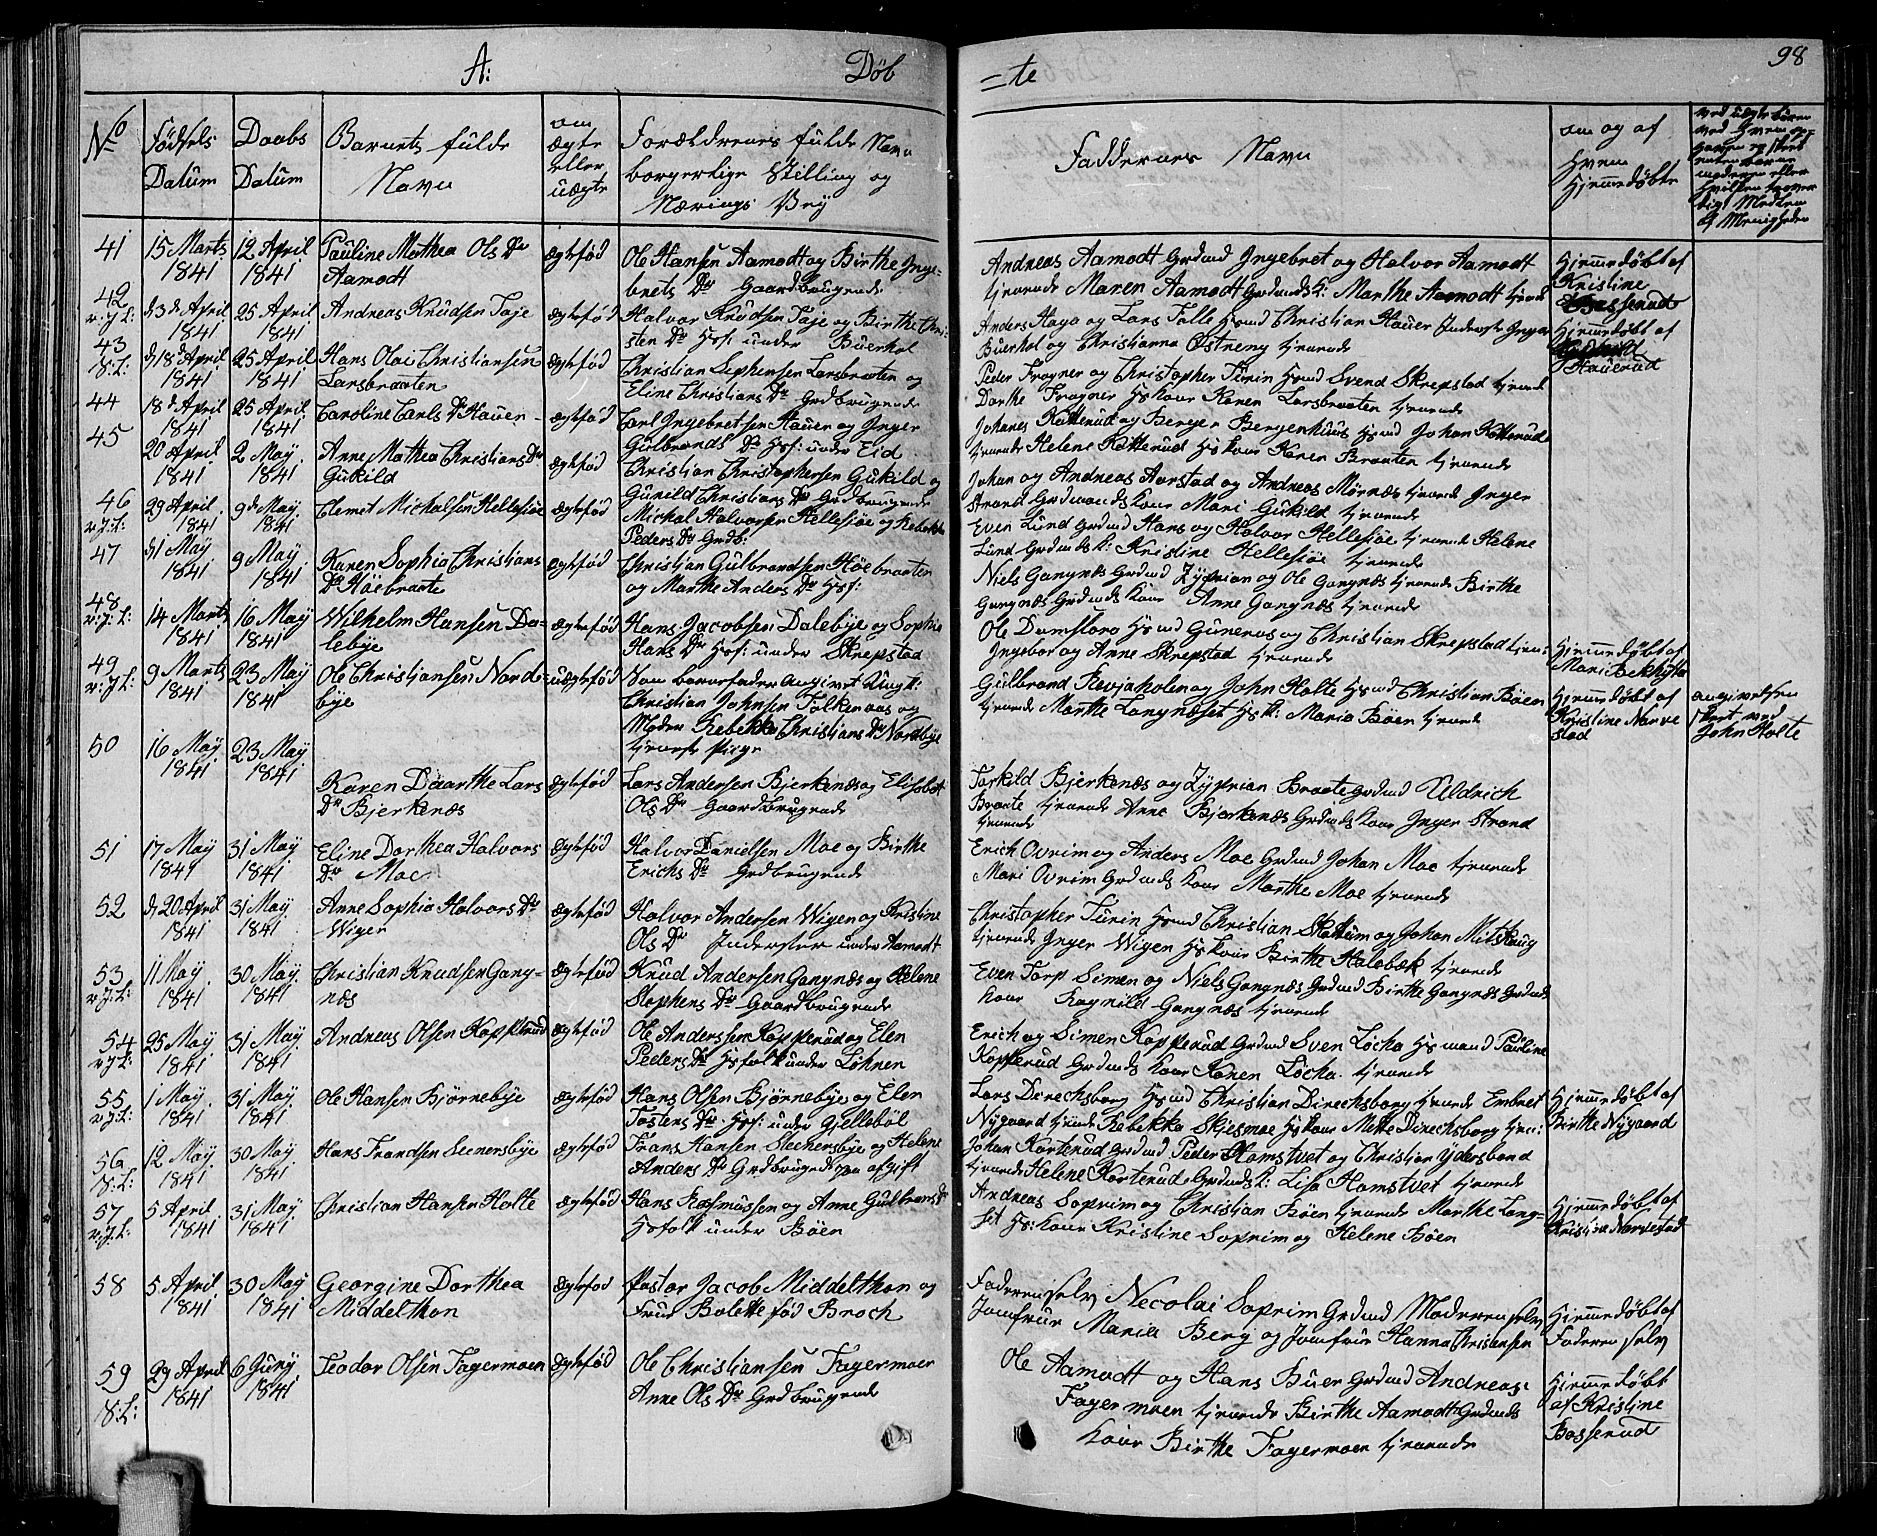 A: Døb
=te 98
No
Fødsels Datum
Daabs Datum
Barnets fulde Navn
om ægte eller uægte
Forældrenes fulde Navn borgerlige Stilling og Nærings Vej
Faddernes Navn
om og af Hvem Hjemedøbte
41 15 Marts 1841 12 April 1841 Pauline Mathea Ols Dr Aamodt ægtefød Ole Hansen Aamodt og Birthe Inge-
brets Dr Gaardbrugende
Andreas Aamodt Grdmd Ingebret og Halvor Aamodt
tjenende Maren Aamodt Grdmds K: Marthe Aamodt tjende
Hjemedøbt af Kristine Basserud
42 v:j:t: d 3de April 1841 25 April 1841 Andreas Knudsen Taje ægtefød Halvor Knudsen Taje og Birthe Chri-
sten Dr Hsf: under Buerhol
Anders Haga og Lars Tolle Hsmd Christian Hauer Inderste Inger
Buerhol og Christianna Østreng tjenende
Hjemedøbt af Hauerud
43 18:t: d 18de April 1841 25 April 1841 Hans Olai Christiansen Larsbraaten ægtefød Christian Stephensen Larsbraaten og
Eline Christians Dr Grdbrugende
Peder Frogner og Christopher Turin Hsmd Svend Skrepstad tjende
Dorthe Frogner Hskone Karen Larsbraaten tjenende
44 18de April 1841 25 April 1841 Caroline Carls Dr Hauer ægtefød Carl Ingebretsen Hauer og Inger
Gulbrands Dr Hsf: under Eid
Johanes Katterud og Berger Bergenhuus Hsmd Johan Katterud
tjenende Helene Katterud Hskone Karen Braaten tjenende
45 20 April 1841 2 May 1841 Anne Mathea Christians Dr Gukild ægtefød Christian Christophersen Gukild og
Gunild Christians Dr Grdbrugende
Johan og Andreas Aarstad og Andreas Mørnæs tjenende Inger
Strand Grdmands Kone Mari Gukild tjenende
46 v:j:t: 29 April 1841 9de May 1841 Clemet Michelsen Hellesiøe ægtefød Michal Halvorsen Hellesiøe og Rebekka
Peders Dr Grdb:
Even Lund Grdmd Hans og Halvor Hellesiøe tjenende Helene
Lund Grdmds K: Kristine Hellesiøe tjenende
47 d 1 May 1841 9 May 1841 Karen Sophia Christians Dr Høebraate ægtefød Christian Gulbrandsen Høebraaten
og Marthe Anders Dr Hsf:
Niels Gangnæs Grdmd Zyprian og Ole Gangnæs tjenende Birthe
Gangnæs Grdmds Kone Anne Gangnæs tjenende
48 v:j:t: 14 Marts 1841 16 May 1841 Wilhelm Hansen Da-
lebye ægtefød Hans Jacobsen Dalebye og Sophie
Hans Dr Hsf: under Skrepstad
Ole Damsloro Hsmd Guneras og Christian Skrepstad tjen:
Ingebor og Anne Skrepstad tjenende
Hjemmedøbt af Mari Bekhytte
49 v:j:t: 9 Marts 1841 23 May 1841 Ole Christiansen Nord-
bye uægtefød Som barnefader angivet Ungk:
Christian Johnsen Falkenaas og
Moder Rebekka Christians Dr Nordbye
tjeneste Pige
Gulbrand Revjaholen og John Holte Hsmd Christian Bøen
tjenende Marthe Langnæset Hs K: Maria Bøen tjende
Hjemmedøbt af Kristine Narve
stad
angivelsen skeet ved John Holte
50 16 May 1841 23 May 1841 Karen Daarthe Lars Dr Bjerkenæs ægtefød Lars Andersen Bjerkenæs og Elisabet
Ols Dr Gaardbrugende
Torkild Bjerkenæs og Zyprian Braate Grdmd Uldrich
Braate tjenende Anne Bjerkenæs Grdmds Kone Inger Strand
tjenende
51 17 May 1841 31 May 1841 Eline Dorthea Halvors Dr Moe ægtefød Halvor Danielsen Moe og Birthe
Erichs Dr Grdbrugende
Erich Ovrim og Anders Moe Grdmd Johan Moe tjenende
Mari Ovrim Grdmds Kone Marthe Moe tjenende
52 d 20 April 1841 31 May 1841 Anne Sophia Halvors Dr Wigen ægtefød Halvor Andersen Wigen og Kristine
Ols Dr Inderster under Aamodt
Christopher Turin Hsmd Christian Skattum og Johan Mitskoug
tjenende Inger Wigen Hskone Birthe Holebæk tjenende
53 v:j:t: 11 May 1841 30 May 1841 Christian Knudsen Gang-
næs ægtefød Knud Andersen Gangnæs og Helene
Stephens Dr Gaardbrugende
Even Torp Simen og Niels Gangnæs Grdmd Birthe Gangnæs Grdmds
Kone Ragnild Gangnæs tjenende
54 v:j:t: 25 May 1841 31 May 1841 Andreas Olsen Kopperud ægtefød Ole Anderssen Kopperud og Elen
Peders Dr Hsfolk under Lohnen
Erich og Simen Kopperud Grdmd Sven Løcha Hsmand Pauline
Kopperud Grdmds Kone Karen Løcha tjenende
55 v:j:t: 1 May 1841 31 May 1841 Ole Hansen Bjørnebye ægtefød Hans Olsen Bjørnebye og Elen
Tostens Dr Hsf: under Gjellebøl
Lars Direchsborg Hsmd Christian Direchsborg tjenende Embret
Nygaard tjende Rebekka Skjesmoe Hskone Mette Direchsborg tjen:
Hjemedøbt af Birthe Nygaard
56 18:t: 12 May 1841 30 May 1841 Hans Frandsen Seenersbye ægtefød Frans Hansen Seenersbye og Helene
Anders Dr Grdbrugende paa afgift
Johan Korterud Grdmd Peder Homstvet og Christian Ydersbond
tjenende Helene Korterud Grdmds K: Lisa Homstvet tjenende
57 v:j:t: 5 April 1841 31 May 1841 Christian Hansen Holte ægtefød Hans Rasmussen og Anne Gulbrands Dr
Hsfolk under Bøen
Andreas Soprim og Christian Bøen tjenende Marthe Lang-
set Hs: Kone Kristine Soprim og Helene Bøen
Hjemmedøbt af Kristine Narvestad
58 5 April 1841 30 May 1841 Georgine Dorthea Middelthon ægtefød Pastor Jacob Middelthon og
Frue Bolette fød Broch
Faderen selv Necolai Soprim Grdmd Moderen selv
Jomfrue Maria Berg og Jomfrue Hanna Christensen
Hjemmedøbt af Faderen selv
59 18:t: 29 April 1841 6 Juny 1841 Teodor Olsen Fagermoen ægtefød Ole Christiansen Fagermoen
Anne Ols Dr Grdbrugende
Ole Aamodt og Hans Buer Grdmd Andreas
Fagermoen tjenende Birthe Aamodt Grdmds
Kone Birthe Fagermoen tjenende
Hjemmedøbt af Kristine Basserud